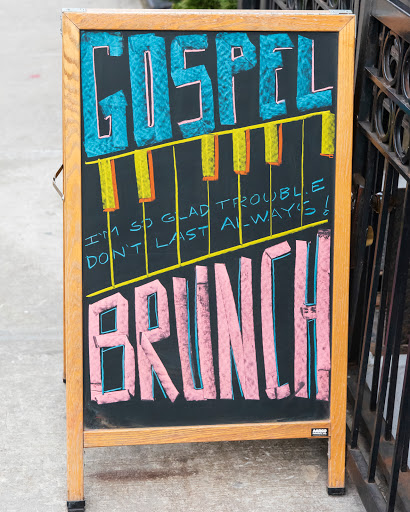 GOSPEL
I'M SO GLAD TROUBLE
DON'T LAST ALWAYS!
BRUNCH